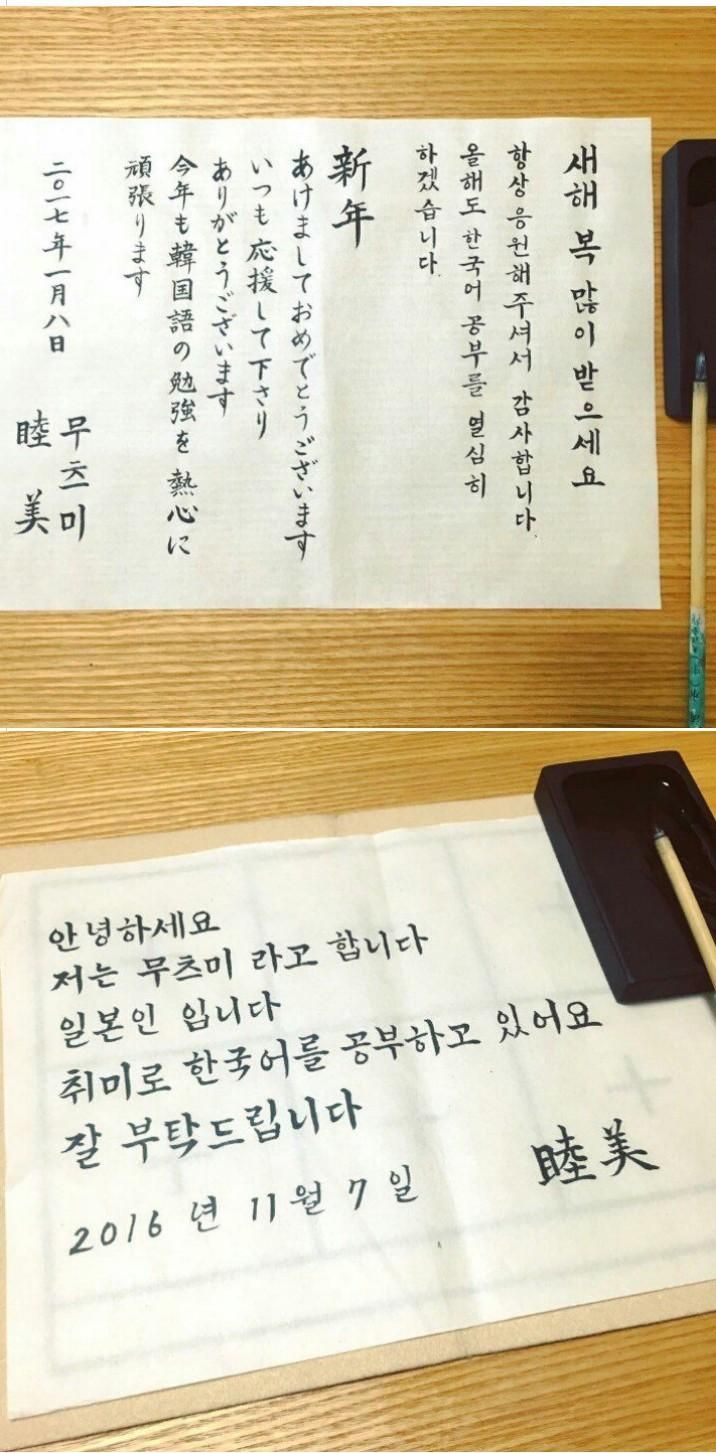 새해 복 많이 받으세요
항상 응원해주셔서 감사합니다.
올해도 한국어 공부를 열심히
하겠습니다.
新年
あけましておめでとうございます
いつも応援して下さり
ありがとうございます
今年も韓国語の勉強を熱心に
頑張ります
二〇一七年一月八日
무츠미
睦美
안녕하세요
저는 무츠미 라고 합니다
일본인 입니다
취미로 한국어를 공부하고 있어요
잘 부탁드립니다
2016 년 11월 7 일
睦美